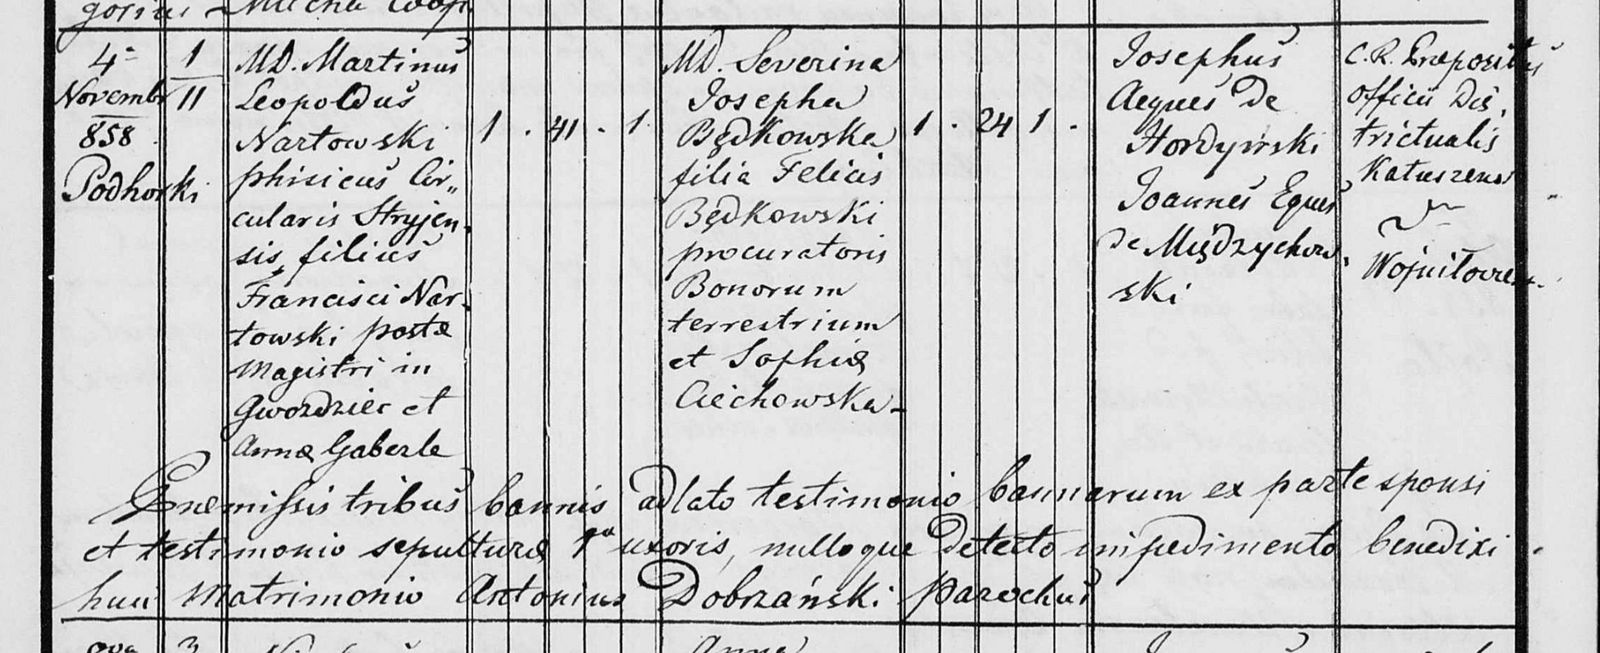 4ª
Novembr
858
Podhorki
1
11
MD. Martinus
Leopoldus
Nartowski
phisicus Cir„
cularis Stryjen„
sis, filius
Francisci Nar„
towski postæ
Magistri in
Gwozdziec et
Annæ Gaberle
1 . 41 . 1
MD. Severina
Josepha
Będkowska
filia Felicis
Będkowski
procuratoris
Bonorum
terrestrium
et Sophiæ
Ciechowska
1 . 24 1 .
Josephus
Aeques de
Hordyński
Joannes Eques
de Międzychow„
ski
C. R. Præpositus
officii Dis„
trictualis
Katuszens
Præmissis tribus bannis adlato testimonio bannarum ex parte sponsi
et testimonio sepulturæ 1ª uxoris, nulloque detecto impedimento benedixi
huic Matrimonio Antonius Dobrzański parochus
3
Anna